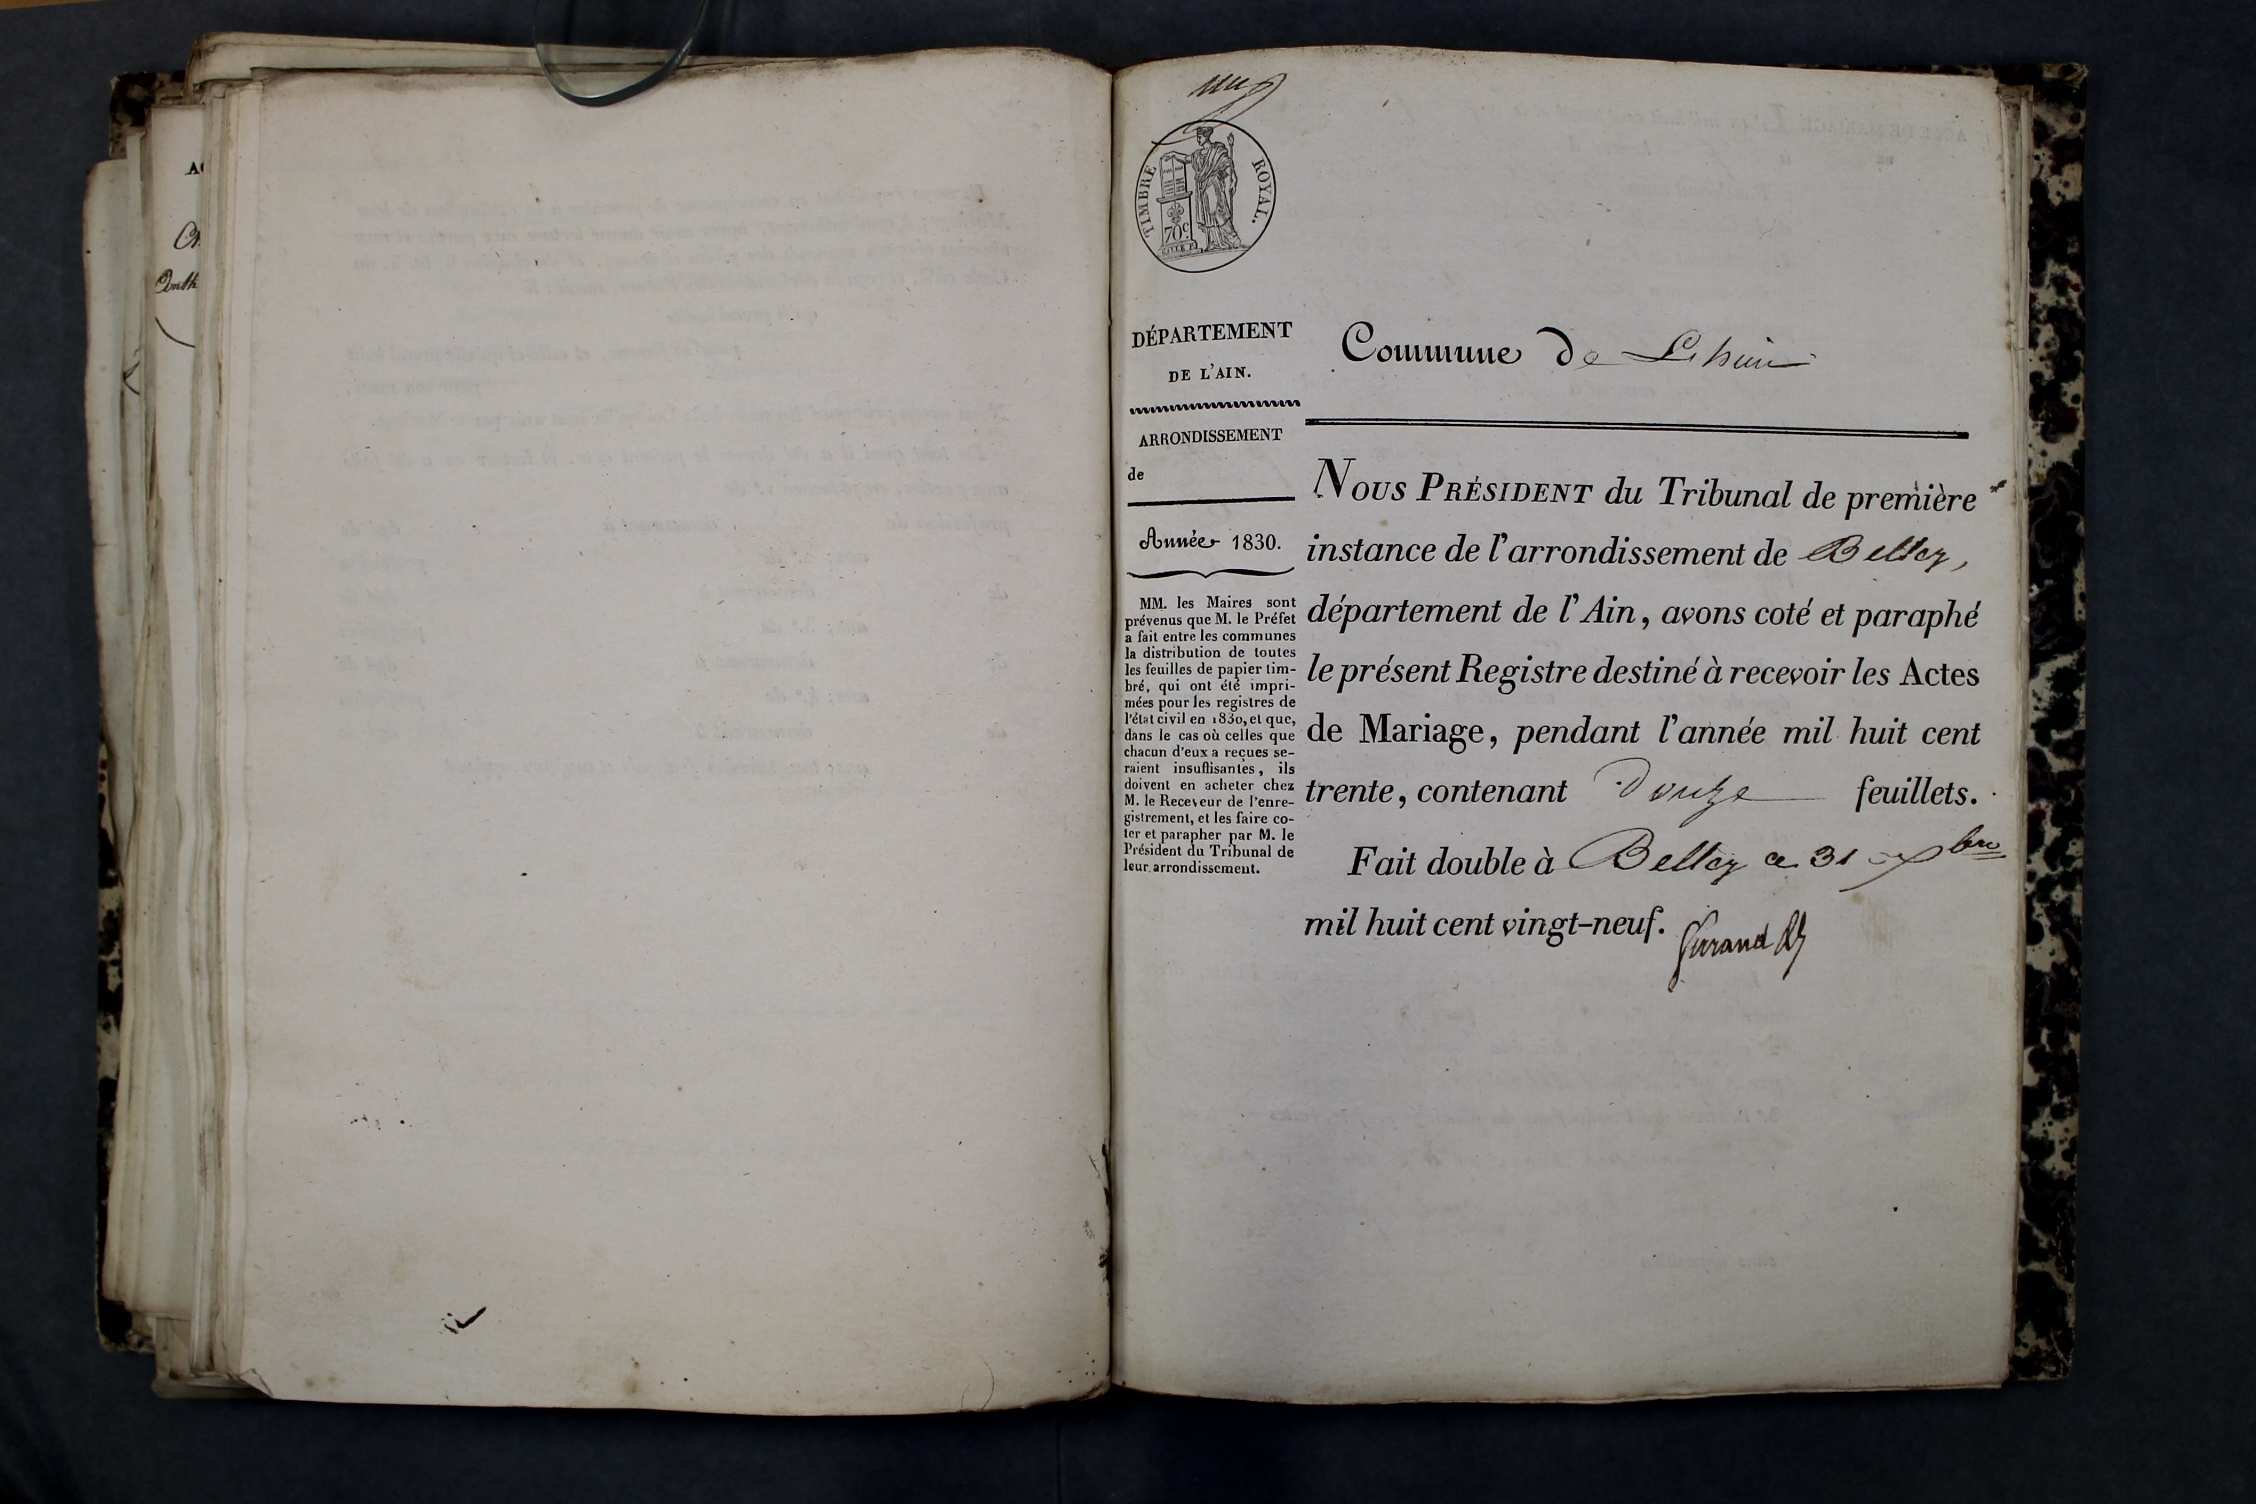 TIMBRE ROYAL.
70c.
DÉPARTEMENT
DE L'AIN.
ARRONDISSEMENT
de
Année 1830.
MM. les Maires sont
prévenus que M. le Préfet
a fait entre les communes
la distribution de toutes
les feuilles de papier tim-
bré, qui ont été impri-
mées pour les registres de
l'état civil en 1830, et que,
dans le cas où celles que
chacun d'eux a reçues se-
raient insuffisantes, ils
doivent en acheter chez
M. le Receveur de l'enre-
gistrement, et les faire co-
ter et parapher par M. le
Président du Tribunal de
leur arrondissement.
Commune de Lhuis
NOUS PRÉSIDENT du Tribunal de première
instance de l'arrondissement de Belley,
département de l'Ain, avons coté et paraphé
le présent Registre destiné à recevoir les Actes
de Mariage, pendant l'année mil huit cent
trente, contenant Douze feuillets.
Fait double à Belley ce 31 Xbre
mil huit cent vingt-neuf.